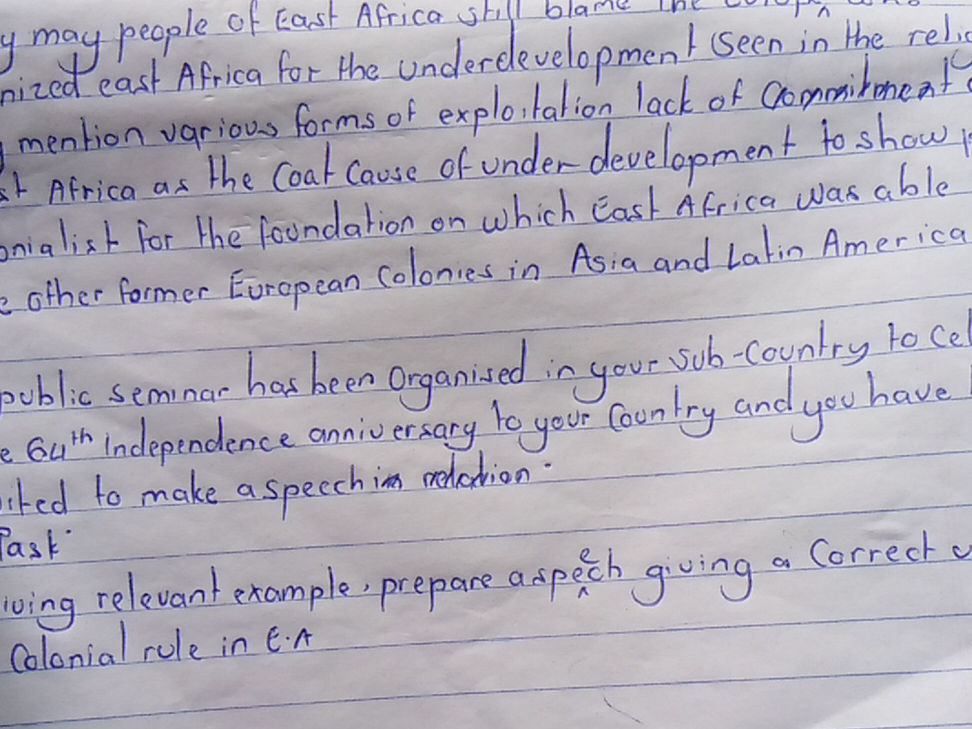 y may people of East Africa still blame the
nized east Africa for the underdevelopment (seen in the relic
mention various forms of exploitation lack of Commitment
st Africa as the Coat Cause of under development to show
onialist for the foundation on which East Africa was able
e other former European Colonies in Asia and Latin America
public seminar has been Organised in your sub-Country to Cel
e 64th independence anniversary to your Country and you have
ited to make a speech in
Task
iving relevant example, prepare a speech giving a Correct
Colonial rule in E.A